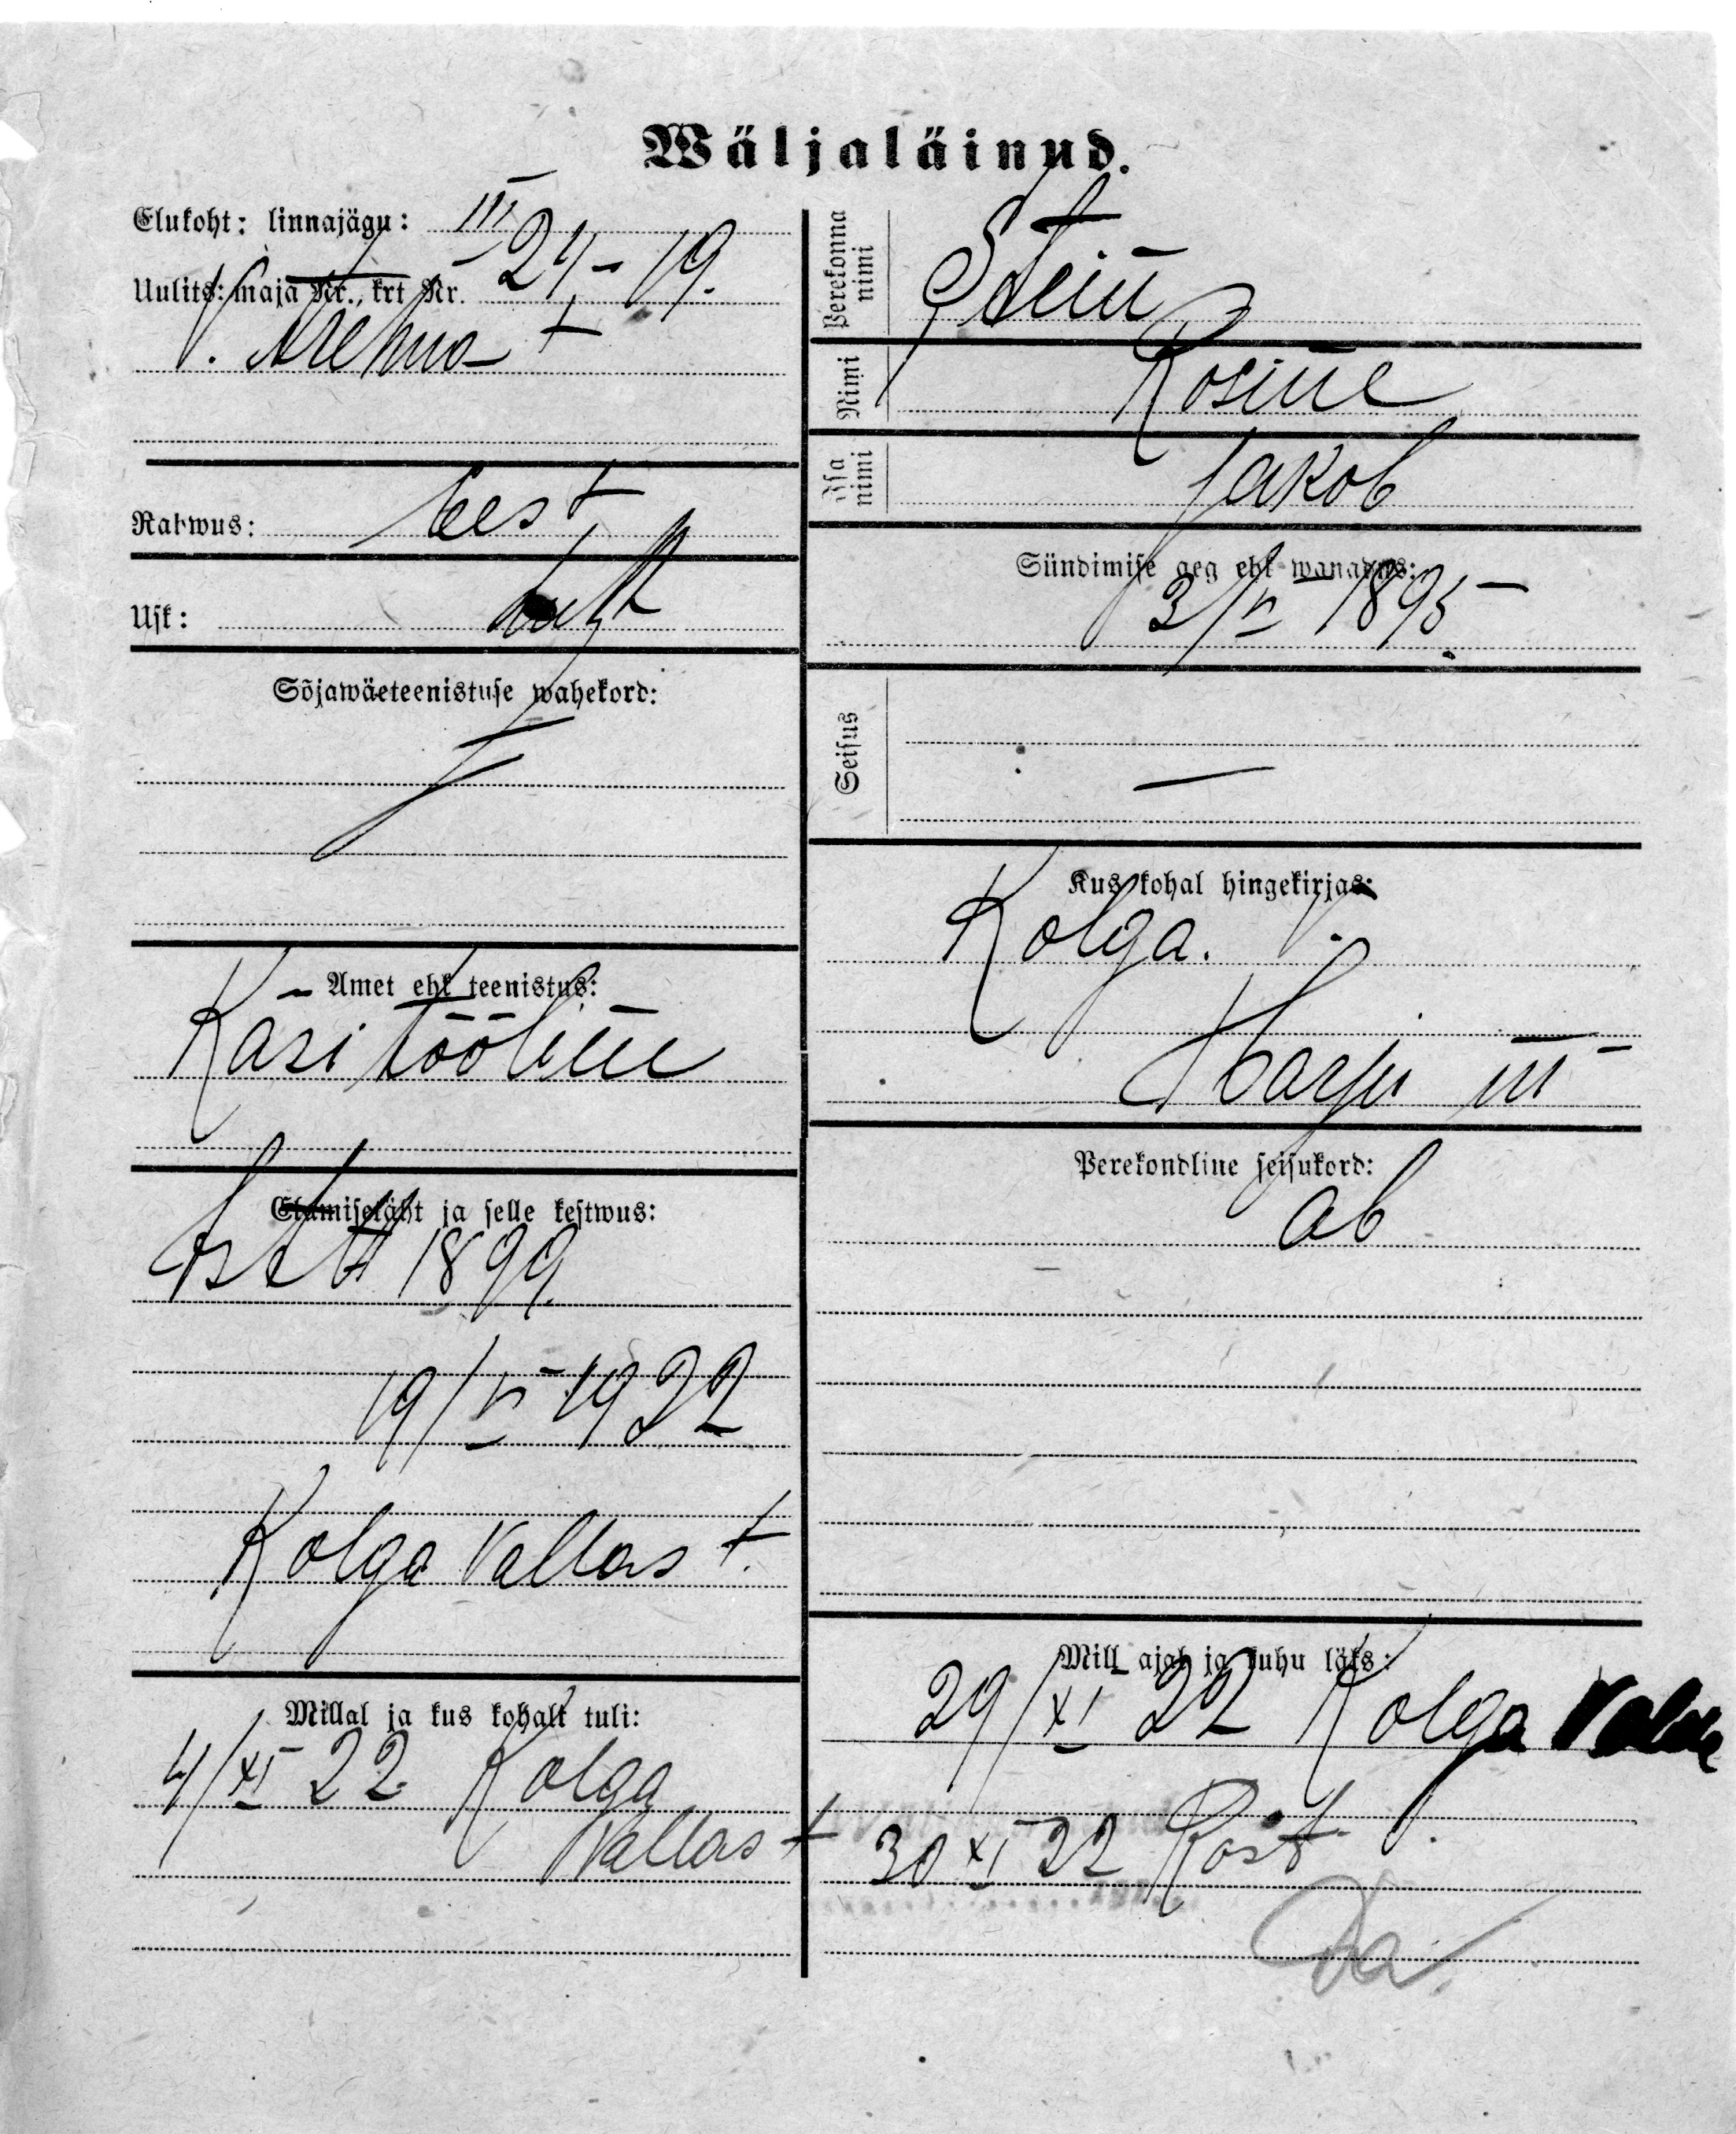 Wäljaläinud.
Elukoht: linnajägu: III
Uulits: maja Nr., krt Nr. 24-19.
Rahwus: Eest
Usk: luht
Sõjawäeteenistuse wahekord:
Amet ehk teenistus:
Käsitööline
Elamiseläht ja selle kestwus:
1899.
19/VI 1922
Kolga Vallast.
Millal ja kus kohalt tuli:
4/XI 22 Kolga
Vallast
Perekonna nimi Stein
Nimi Rosine
Isa nimi Jakob
Sündimise aeg ehk wanadus:
3/VI 1895
Seisus —
Kus kohal hingekirjas:
Kolga. V.
Harju m
Perekondline seisukord:
ab
Mill ajal ja kuhu läks:
29/XI 22 Kolga Valda
30 XI 22